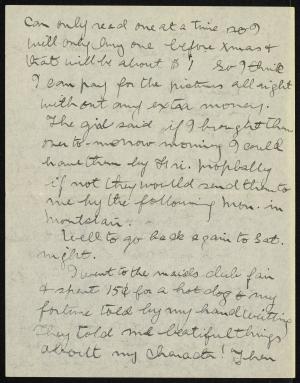 can only read one at a time so I
will only buy one before Xmas &
that will be about $1 So I think
I can pay for the pictures all right
without any extra money.
The girl said if I brought them
over to-morrow morning I could
have them by Fri. propbally
if not they would send them to
me by the following Mon. in
Montclair.
Well to go back again to Sat.
night.
I went to the maids club fair
& spent 15¢ for a hot dog & my
fortune told by my handwriting
They told me beatiful things
aboutt my character! Then